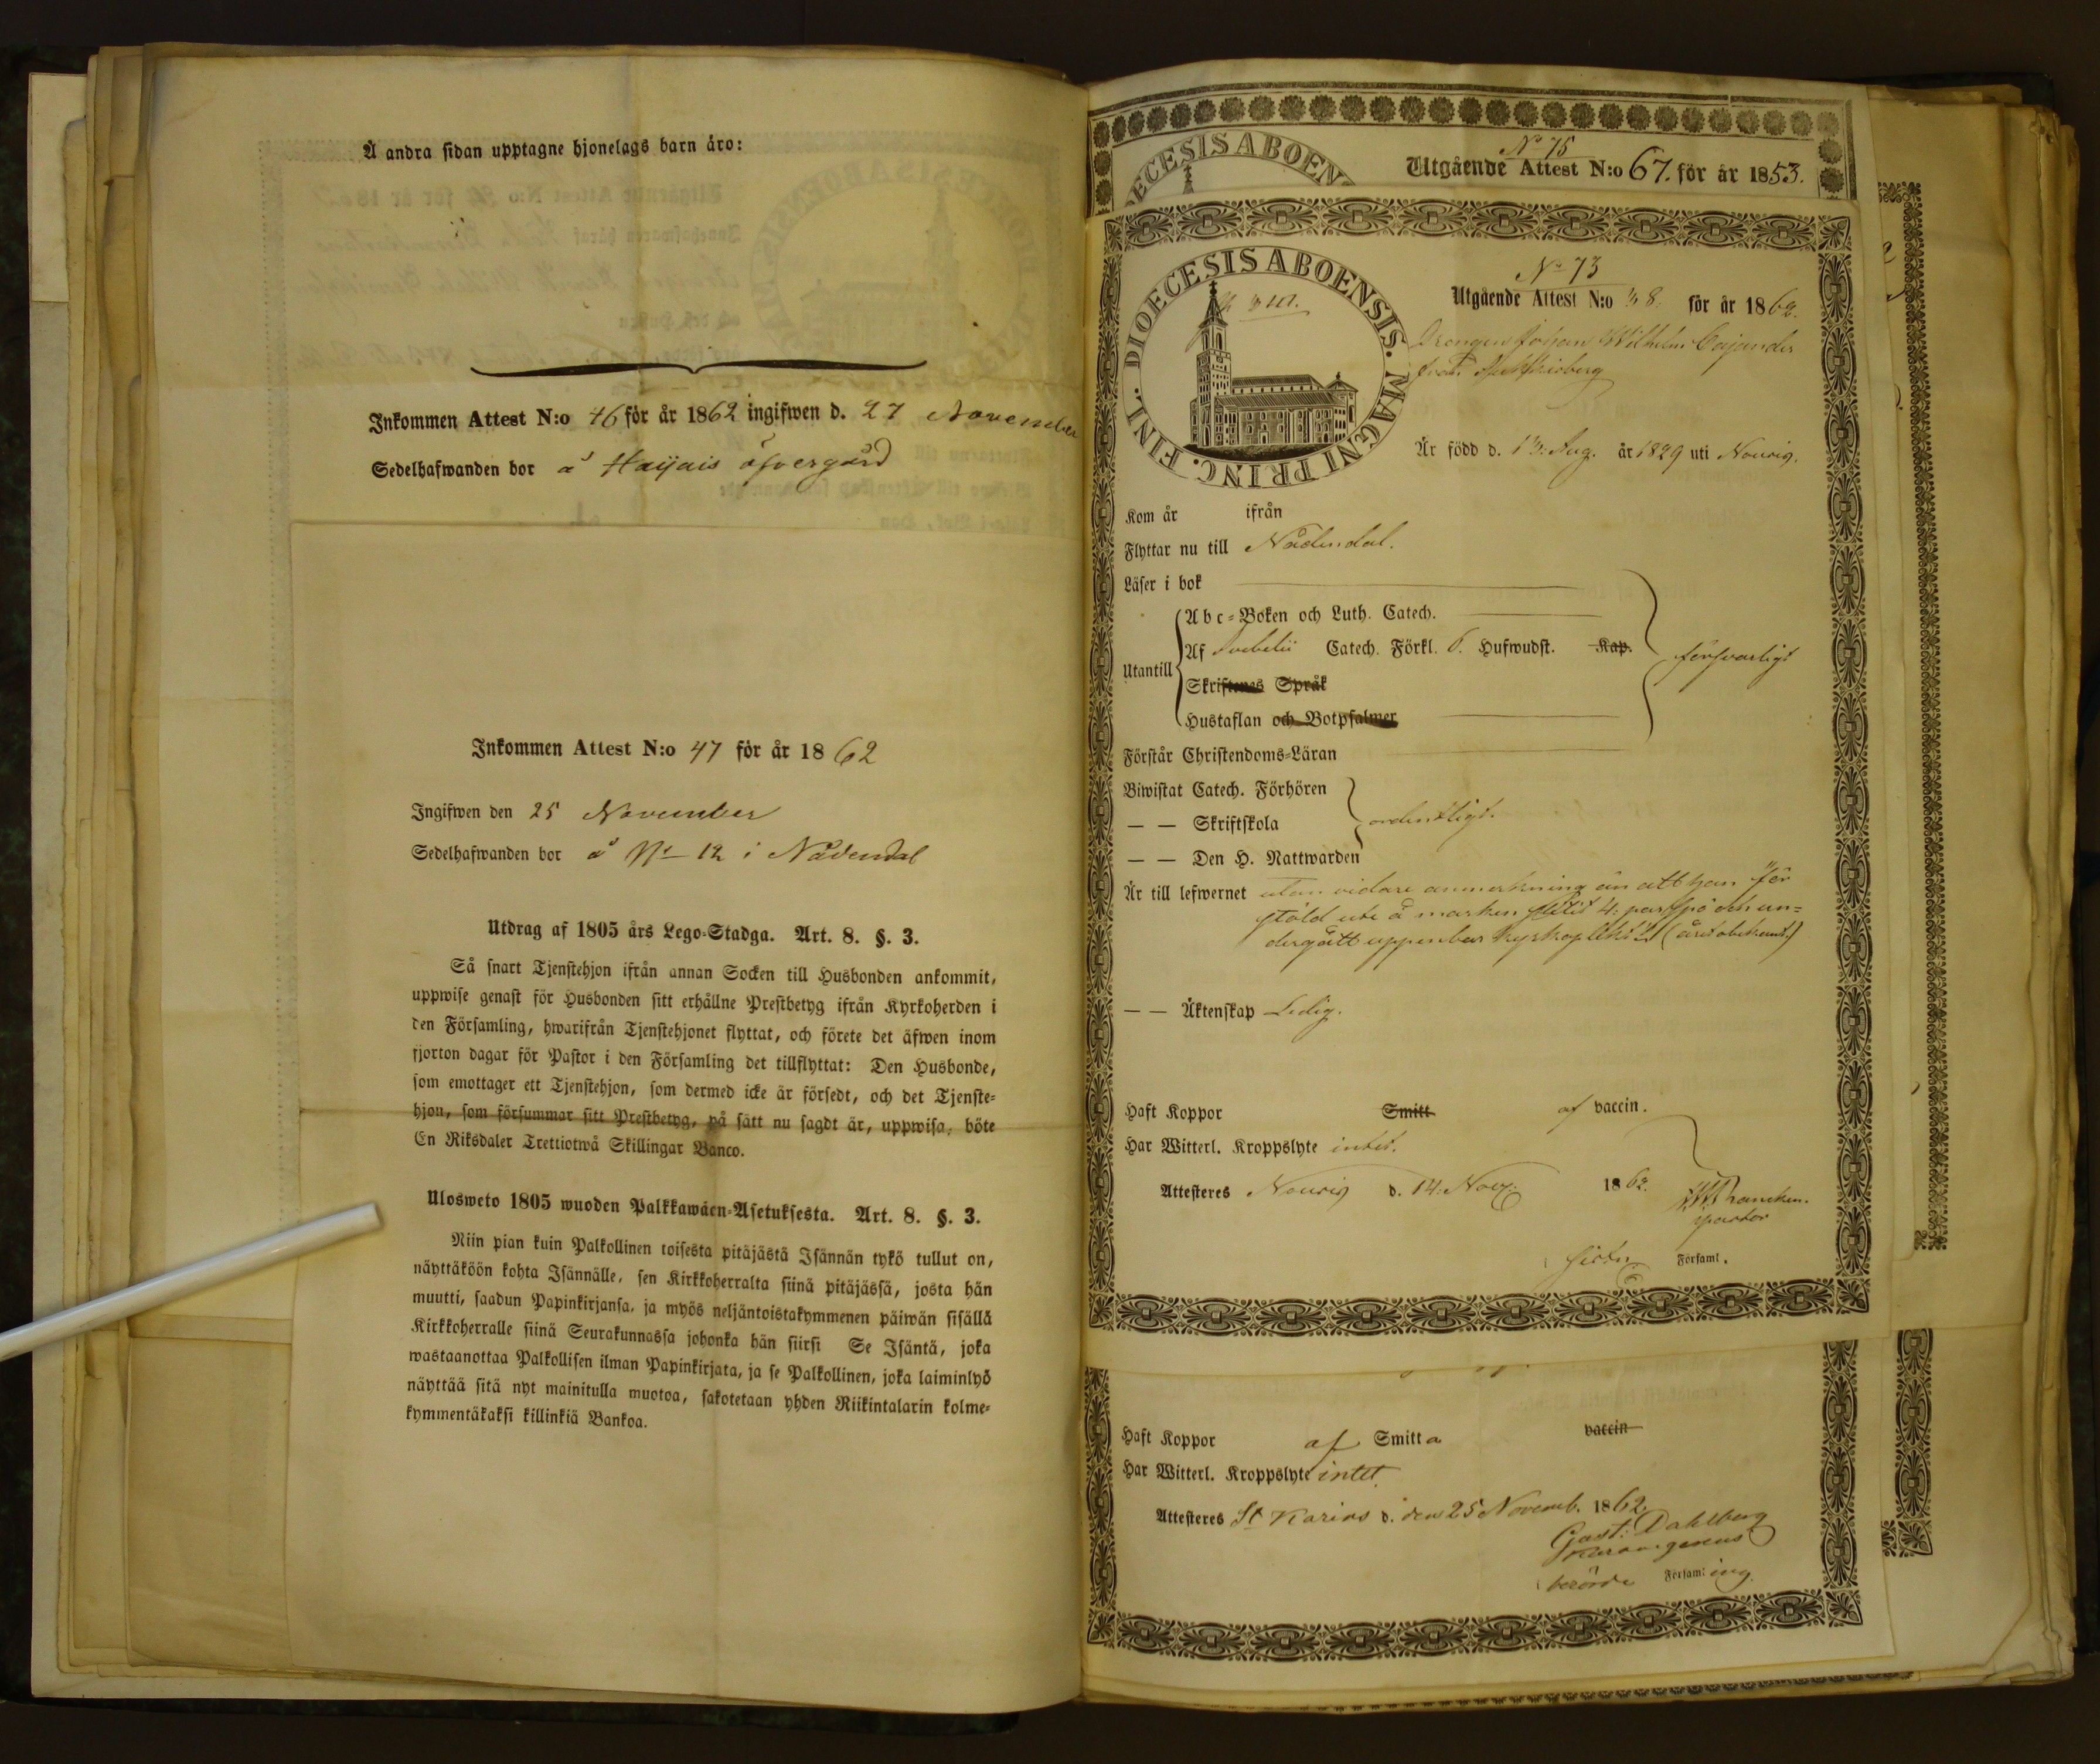 Å andra sidan upptagne hjonelags barn äro:
Inkommen Attest N:o 46 för år 1862 ingifwen d. 27 November
Sedelhafwanden bor å Haijais öfvergård
Inkommen Attest N:o 47 för år 1862
Ingifwen den 25 November
Sedelhafwanden bor å No 12 i Nådendal
Utdrag af 1805 års Lego-Stadga. Art. 8. §. 3.
Så snart Tjenstehjon ifrån annan Socken till Husbonden ankommit,
uppwise genast för Husbonden sitt erhållne Prestbetyg ifrån Kyrkoherden i
den Församling, hwarifrån Tjenstehjonet flyttat, och förete det äfwen inom
fjorton dagar för Pastor i den Församling det tillflyttat: Den Husbonde,
som emottager ett Tjenstehjon, som dermed icke är försedt, och det Tjenste-
hjon, som försummar sitt Prestbetyg, på sätt nu sagdt är, uppwisa, böte
En Riksdaler Trettiotwå Skillingar Banco.
Ulosweto 1805 wuoden Palkkawäen-Asetuksesta. Art. 8. §. 3.
Niin pian kuin Palkollinen toisesta pitäjästä Isännän tykö tullut on,
näyttäköön kohta Isännälle, sen Kirkkoherralta siinä pitäjässä, josta hän
muutti, saadun Papinkirjansa, ja myös neljäntoistakymmenen päiwän sisällä
Kirkkoherralle siinä Seurakunnassa johonka hän siirsi Se Isäntä, joka
wastaanottaa Palkollisen ilman Papinkirjata, ja se Palkollinen, joka laiminlyö
näyttää sitä nyt mainitulla muotoa, sakotetaan yhden Riikintalarin kolme-
kymmentäkaksi killinkiä Bankoa.
DIOECESIS ABOEN
No 75
Utgående Attest N:o 67. för år 1853.
DIOECESIS ABOENSIS. MAGNI PRINC. FINL.
No 73
Utgående Attest N:o 8. för år 1862.
Drengen Johan Wilhelm Cajander
från
Är född d. 13. Aug. år 1829 uti Nousis.
Kom år ifrån
Flyttar nu till Nådendal.
Läser i bok
Utantill
Abc-Boken och Luth. Catech.
Af Svebelii Catech. Förkl. 6. Hufwudst. Kap.
Skriftenes Språk
Hustaflan och Botpsalmer
försvarligt
Förstår Christendoms-Läran
Biwistat Catech. Förhören
— — Skriftskola
ordentligt.
— — Den H. Nattwarden
Är till lefwernet utan vidare anmerkning än att han för
stöld ute å marken 4: par och un-
dergått uppenbar kyrkoplikt (året obekant.)
— — Äktenskap Ledig.
Haft Koppor Smitt af vaccin.
Har Witterl. Kroppslyte intet.
Attesteres Nousis d. 14. Nov. 1862.
pastor
Församl.
Haft Koppor af Smitta vaccin
Har Witterl. Kroppslyte intet
Attesteres St Karins d. den 25 Novemb. 1862.
Gust: Dahlberg
berörde Församling